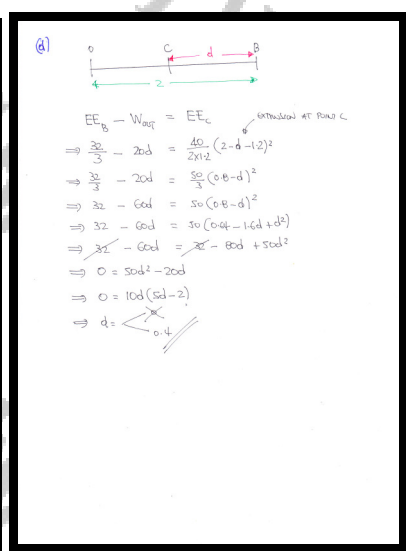 (d)
O C d B
2
EE_B − W_OUT = EE_C
EXTENSION AT POINT C
⇒ 32/3 − 20d = 40/(2×1.2) (2-d-1.2)²
⇒ 32/3 − 20d = 50/3 (0.8-d)²
⇒ 32 − 60d = 50(0.8-d)²
⇒ 32 − 60d = 50(0.64 − 1.6d + d²)
⇒ 32 − 60d = 32 − 80d + 50d²
⇒ 0 = 50d² − 20d
⇒ 0 = 10d(5d−2)
⇒ d = 0
0.4